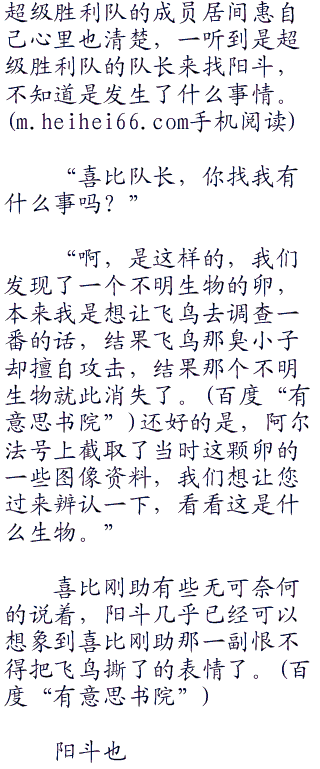 超级胜利队的成员居间惠自
己心里也清楚，一听到是超
级胜利队的队长来找阳斗，
不知道是发生了什么事情。
(m.heihei66.com手机阅读)
“喜比队长，你找我有
什么事吗？”
“啊，是这样的，我们
发现了一个不明生物的卵，
本来我是想让飞鸟去调查一
番的话，结果飞鸟那臭小子
却擅自攻击，结果那个不明
生物就此消失了。(百度“有
意思书院”)还好的是，阿尔
法号上截取了当时这颗卵的
一些图像资料，我们想让您
过来辨认一下，看看这是什
么生物。”
喜比刚助有些无可奈何
的说着，阳斗几乎已经可以
想象到喜比刚助那一副恨不
得把飞鸟撕了的表情了。(百
度“有意思书院”)
阳斗也